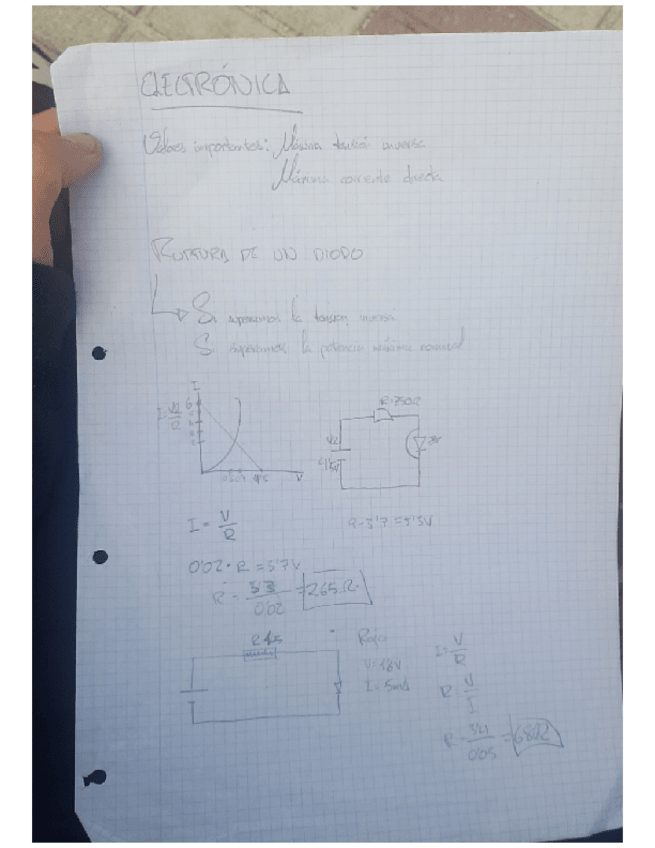 ELECTRÓNICA
Valores importantes: Máxima tensión inversa
Máxima corriente directa
RUPTURA DE UN DIODO
Si superamos la tensión inversa
Si superamos la potencia máxima nominal
I
6
V
R=750Ω
I = V/R
9-3'7 = 5'3V
0'02 · R = 5'7V
R = 5'3/0'02 = 265Ω
Rojo
V=1,8V
I = 5mA
I = V/R
R = V/I